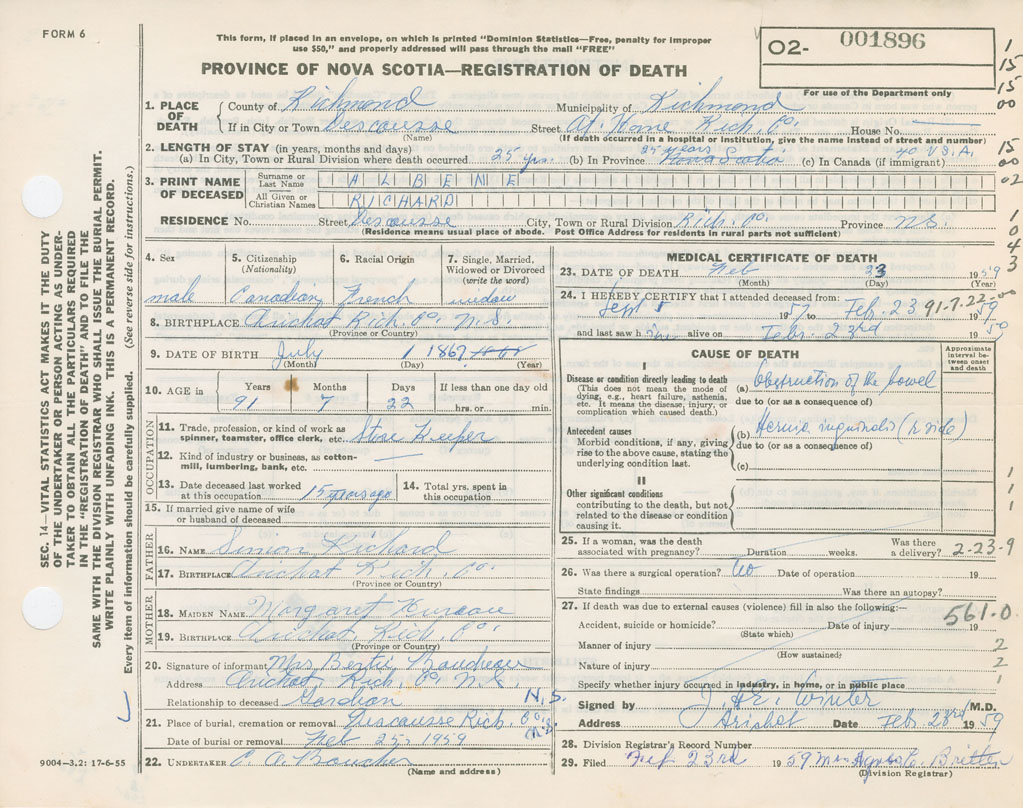 FORM 6
This form, if placed in an envelope, on which is printed "Dominion Statistics—Free, penalty for improper
use $50," and properly addressed will pass through the mail "FREE"
PROVINCE OF NOVA SCOTIA—REGISTRATION OF DEATH
02- 001896
For use of the Department only
1. PLACE OF DEATH County of Richmond Municipality of Richmond
If in City or Town Descousse Street At Home Rich. Co. House No.
(Name) (If death occurred in a hospital or institution, give the name instead of street and number)
2. LENGTH OF STAY (in years, months and days)
(a) In City, Town or Rural Division where death occurred 25 yrs. (b) In Province 25 years Nova Scotia (c) In Canada (if immigrant) U.S.A.
3. PRINT NAME OF DECEASED Surname or Last Name ALBENE
All Given or Christian Names RICHARD
RESIDENCE No. Street Descousse City, Town or Rural Division Rich. Co. Province N.S.
(Residence means usual place of abode. Post Office Address for residents in rural parts not sufficient)
4. Sex 5. Citizenship (Nationality) 6. Racial Origin 7. Single, Married, Widowed or Divorced (write the word)
male Canadian French widow
8. BIRTHPLACE Arichat Rich. Co. N.S.
(Province or Country)
9. DATE OF BIRTH July 1 1867
(Month) (Day) (Year)
10. AGE in Years Months Days If less than one day old
91 7 22 hrs. or min.
OCCUPATION
11. Trade, profession, or kind of work as spinner, teamster, office clerk, etc. Store Keeper
12. Kind of industry or business, as cotton-mill, lumbering, bank, etc.
13. Date deceased last worked at this occupation 15 years ago 14. Total yrs. spent in this occupation
15. If married give name of wife or husband of deceased
FATHER
16. NAME Simon Richard
17. BIRTHPLACE Arichat Rich. Co.
(Province or Country)
MOTHER
18. MAIDEN NAME Margaret
19. BIRTHPLACE Arichat Rich. Co.
(Province or Country)
20. Signature of informant Mrs Bertie Boudreau
Address Arichat Rich. Co. N.S.
Relationship to deceased Gardian N.S.
21. Place of burial, cremation or removal Descousse Rich. Co. N.S.
Date of burial or removal Feb 25, 1959
22. UNDERTAKER Boucher
(Name and address)
9004—3.2: 17-6-55
MEDICAL CERTIFICATE OF DEATH
23. DATE OF DEATH Feb 23 1959
(Month) (Day) (Year)
24. I HEREBY CERTIFY that I attended deceased from:
Sept 1957 to Feb. 23 1959
91-7-22-00
and last saw h alive on Feb. 23rd 1959
CAUSE OF DEATH
Approximate interval between onset and death
I
Disease or condition directly leading to death
(This does not mean the mode of dying, e.g., heart failure, asthenia, etc. It means the disease, injury, or complication which caused death.)
(a) Obstruction of the bowel
due to (or as a consequence of)
Antecedent causes
Morbid conditions, if any, giving rise to the above cause, stating the underlying condition last.
(b) Hernia inguinalis (r side)
due to (or as a consequence of)
(c)
II
Other significant conditions contributing to the death, but not related to the disease or condition causing it.
25. If a woman, was the death associated with pregnancy? Duration weeks. Was there a delivery?
2-23-9
26. Was there a surgical operation? No Date of operation 19
State findings Was there an autopsy?
27. If death was due to external causes (violence) fill in also the following:—
561-0
Accident, suicide or homicide? Date of injury 19
(State which)
Manner of injury 2
(How sustained)
Nature of injury 2
Specify whether injury occurred in industry, in home, or in public place 1
Signed by Winter M.D.
Address Arichat Date Feb. 23rd 1959
28. Division Registrar's Record Number
29. Filed Feb 23rd 1959 Mrs Agnes C. Britten
(Division Registrar)
SEC. 14—VITAL STATISTICS ACT MAKES IT THE DUTY
OF THE UNDERTAKER OR PERSON ACTING AS UNDER-
TAKER TO OBTAIN ALL THE PARTICULARS REQUIRED
IN THE "REGISTRATION OF DEATH" AND TO FILE THE
SAME WITH THE DIVISION REGISTRAR WHO SHALL ISSUE THE BURIAL PERMIT.
WRITE PLAINLY WITH UNFADING INK. THIS IS A PERMANENT RECORD.
Every item of information should be carefully supplied. (See reverse side for instructions.)
1
15
15
00
15
00
02
1
0
4
3
1
1
1